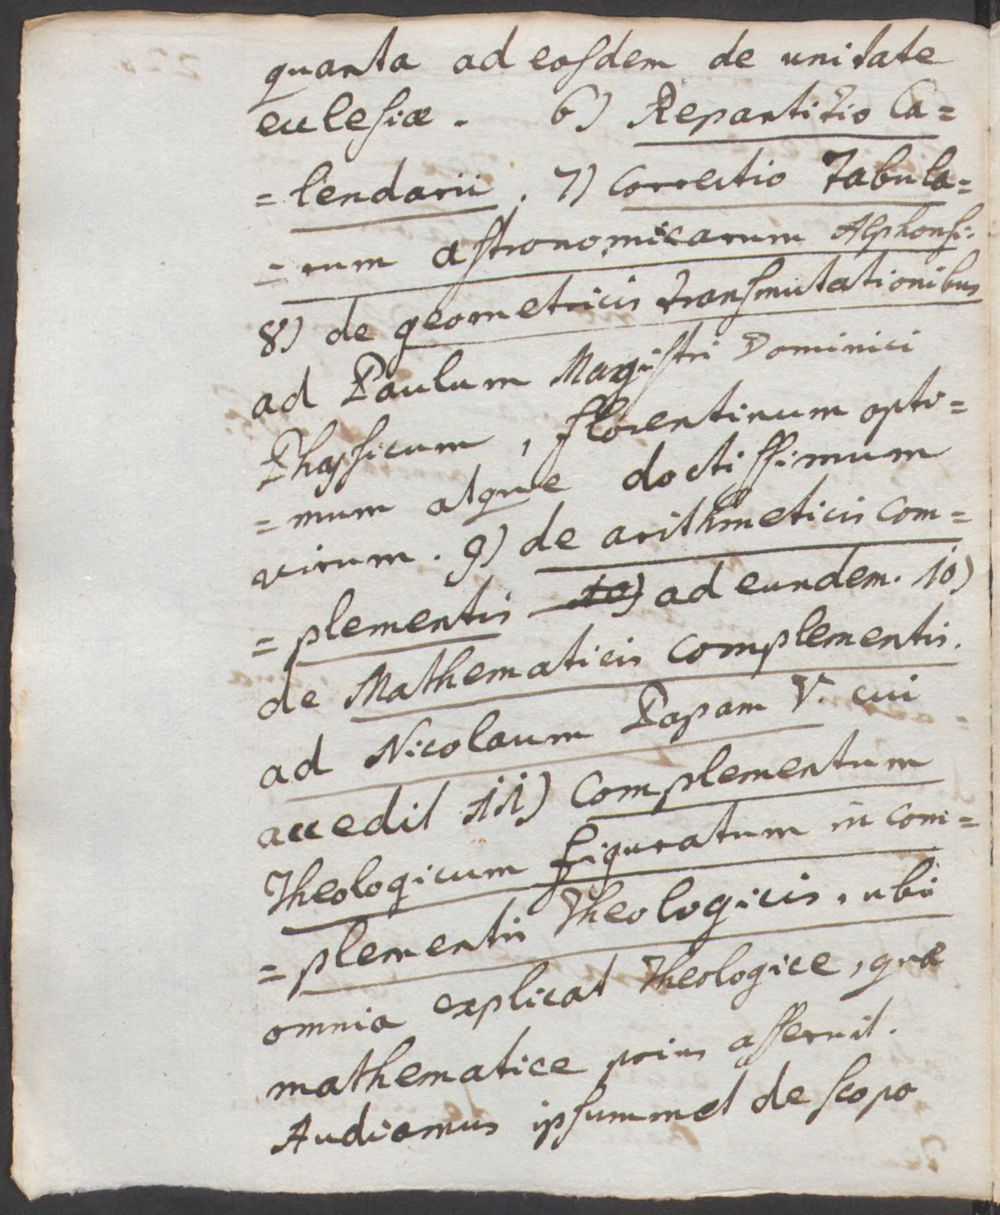 quanta ad eosdem de unitate
eclesiæ. 6) Repartitio Ca=
=lendarii. 7) Correctio Tabula=
=rum astronomicarum Alphonsi:
8) de geometricis transmutationibus
ad Paulum Magistri Dominici
Phÿsicum, florentinum opti=
=mum atque doctissimum
virum. 9) de arithmeticis com=
=plementis ad eundem. 10)
de Mathematicis complementis.
ad Nicolaum Papam V. cui
accedit 11) Complementum
Theologicum figuratum in com=
=plementis Theologicis, ubi
omnia explicat Theologice, quæ
mathematice prius asseruit.
Audiamus ipsummet de scopo